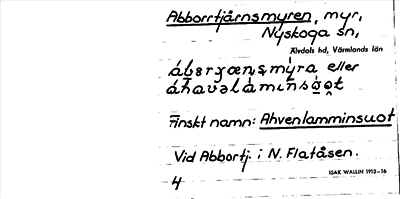 Abborrtjärnsmyren, myr,
Nyskoga sn,
Älvdals hd, Värmlands län
eller
Finskt namn: Ahvenlamminsuot
Vid Abbortj. i N. Flatåsen.
ISAK WALLIN 1913–16
4